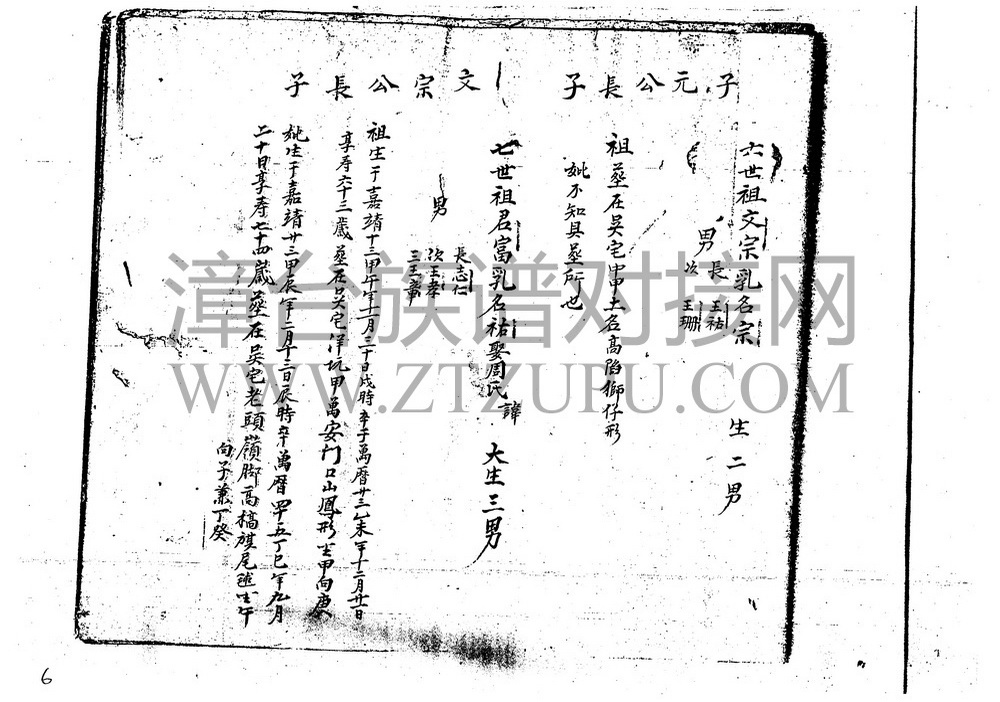 子元公長子
六世祖文宗乳名宗 生二男
男 長王祜 次王珊
祖塟在吴宅 土名高陷獅仔形
妣不知具塟所也
文宗公長子
七世祖君富乳名祜娶周氏諱 大生三男
男 長志仁 次 三王章
祖生于嘉靖十三甲午年十一月三十日戌時卒于萬曆廿三乙未年十二月廿日
享寿六十三歲塟在吴宅洋坑甲萬安門口山鳳形坐甲向庚
妣生于嘉靖廿三甲辰年二月十三日辰時卒萬曆四十五丁巳年九月
二十日享寿七十四歲塟在吴宅老頭嶺脚高槁旗尾 坐午
向子兼丁癸
漳台族谱对接网
WWW.ZTZUPU.COM
6